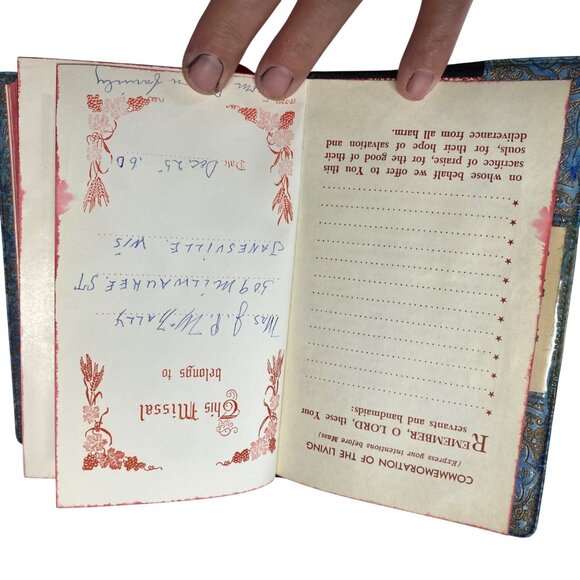 This Missal
belongs to
Mrs. J. P. McNally
309 MILWAUKEE ST
JANESVILLE WIS
Date Dec 25 '60
family
COMMEMORATION OF THE LIVING
(Express your intentions before Mass)
REMEMBER, O LORD, these Your
servants and handmaids:
on whose behalf we offer to You this
sacrifice of praise, for the good of their
souls, for their hope of salvation and
deliverance from all harm.